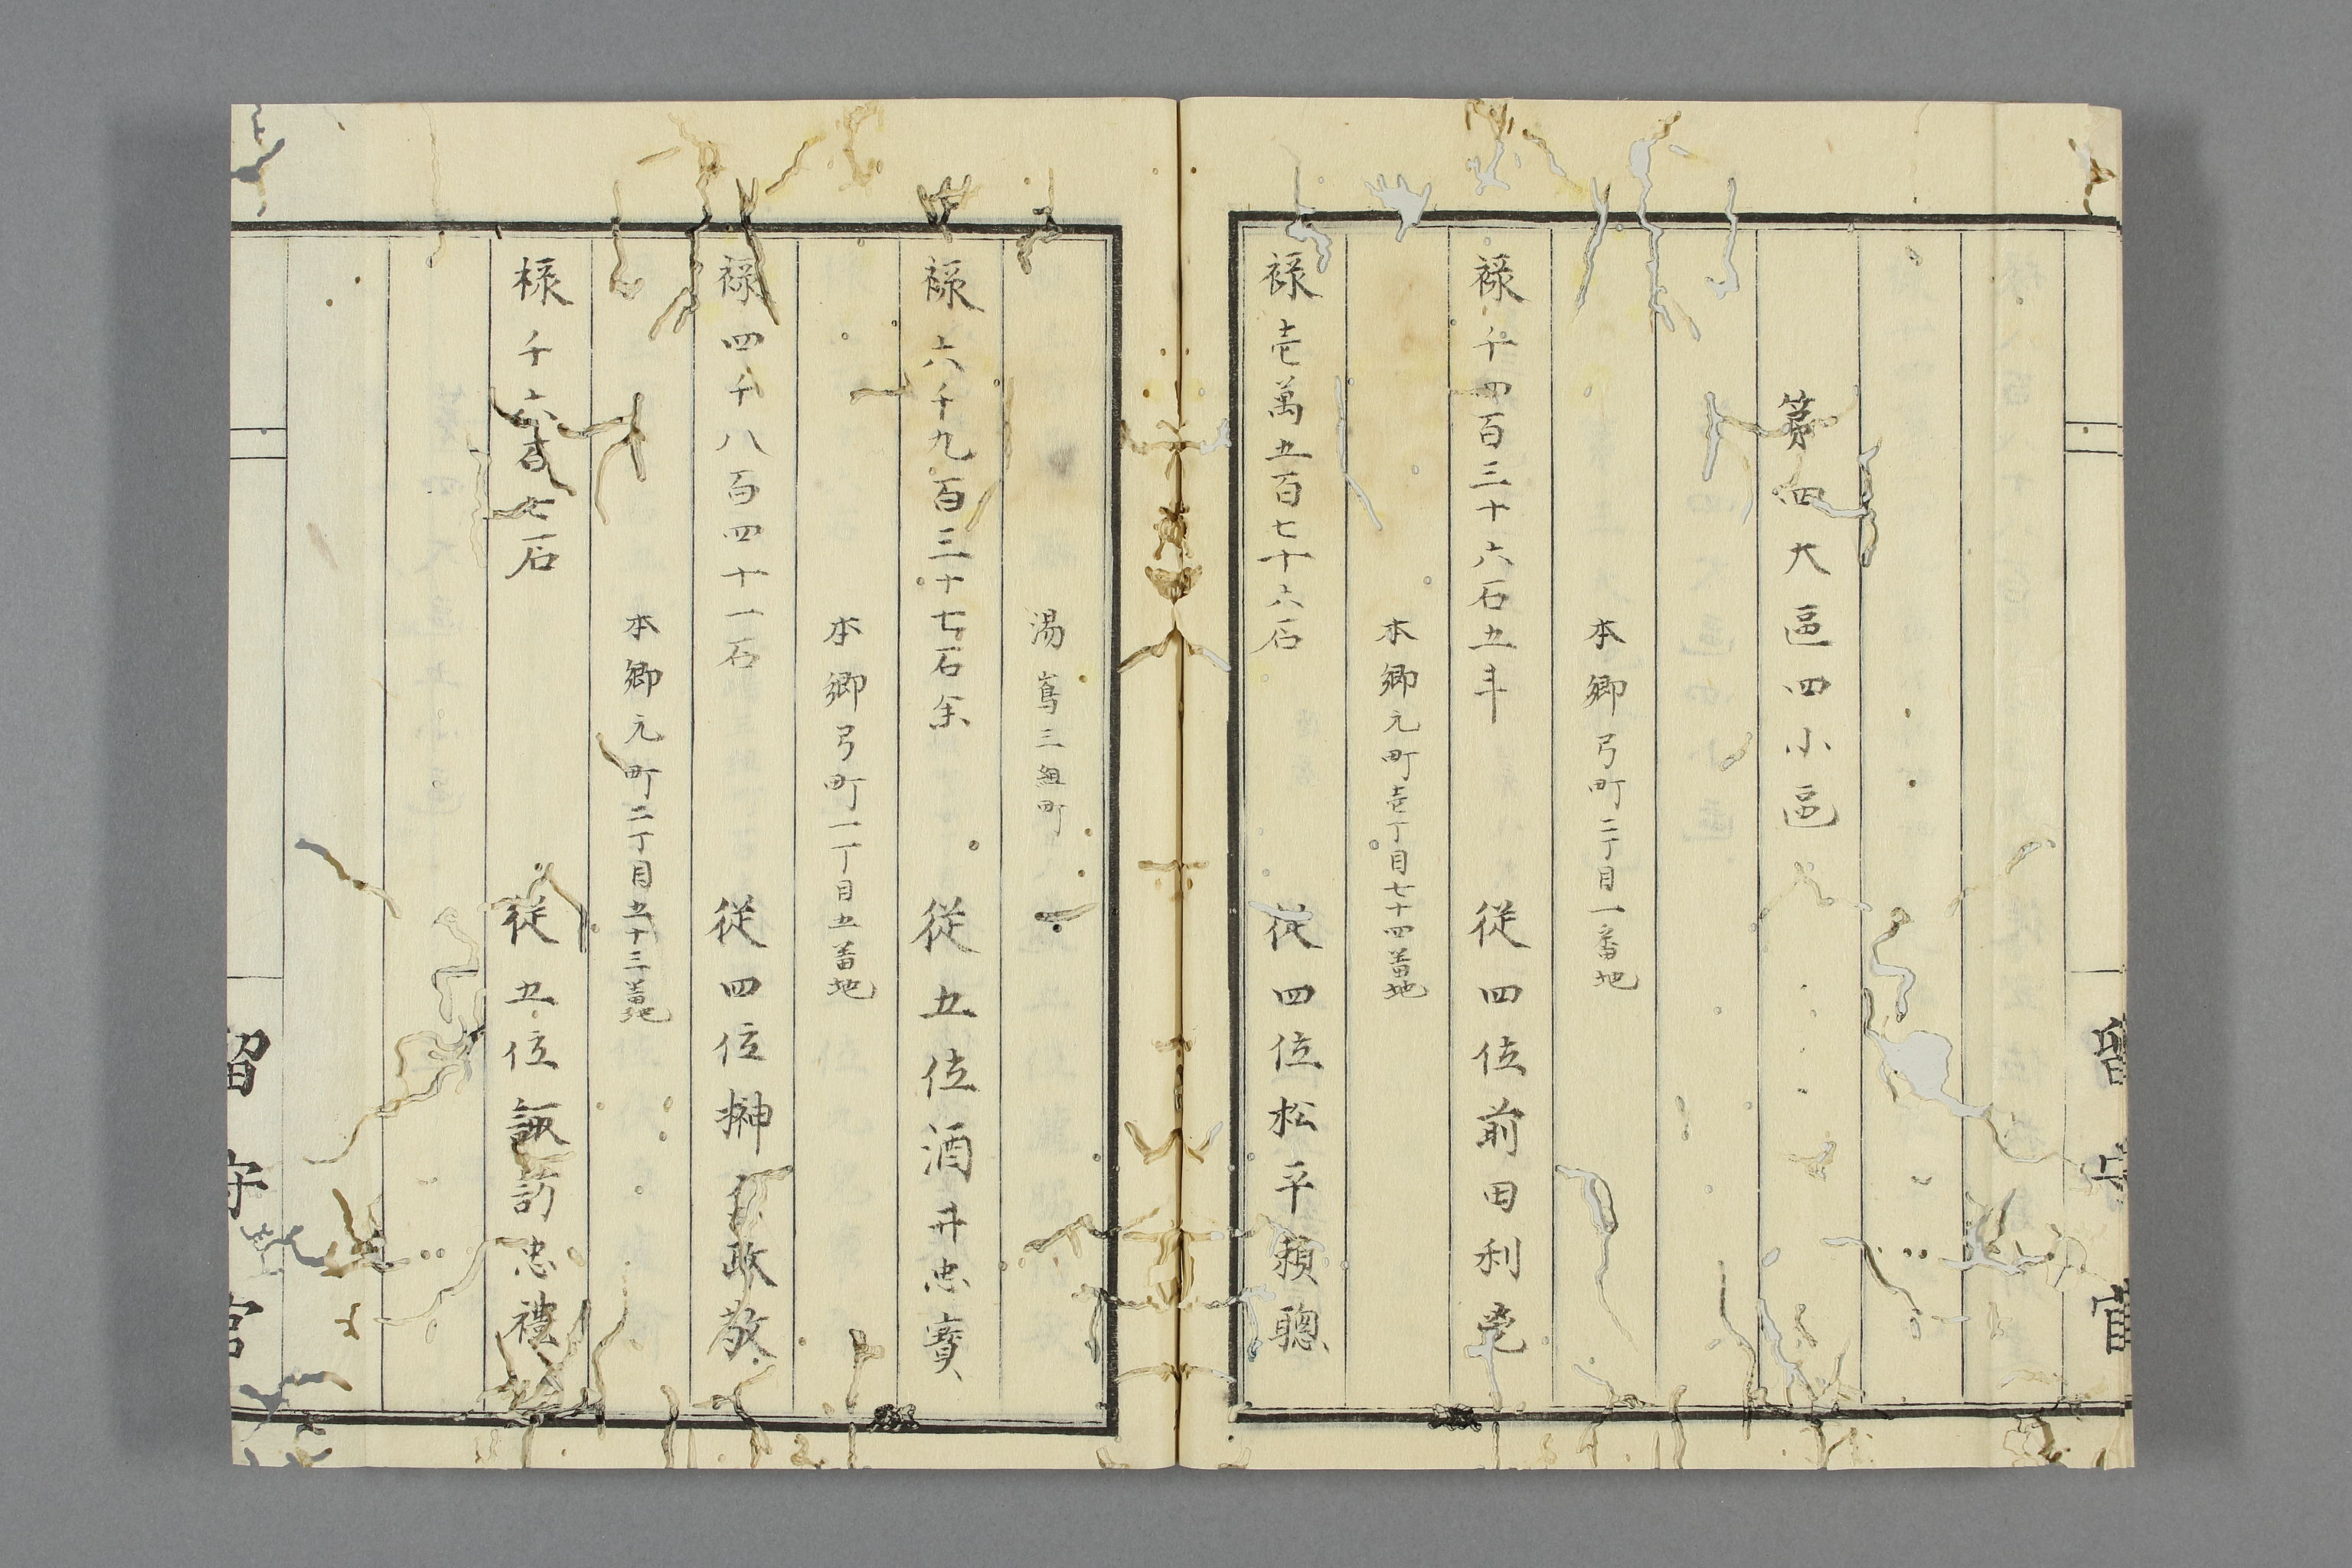 第四大區四小區
本郷弓町二丁目一番地
禄千四百三十六石五斗 従四位前田利鬯
本郷元町壱丁目七十四番地
禄壱萬五百七十六石 従四位松平頼聰
湯嶌三組町
禄六千九百三十七石余 従五位酒井忠寶
本郷弓町一丁目五番地
禄四千八百四十一石 従四位榊原政敬
本郷元町二丁目五十三番地
禄千六百七石 従五位諏訪忠禮
留守官